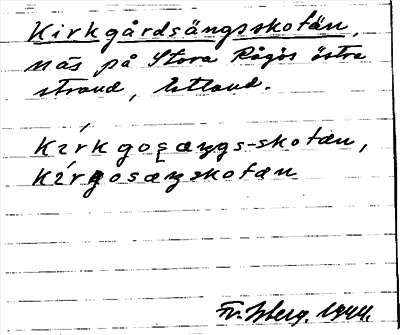 Kirkgårdsängsskotän,
näs på Stora Rågös östra
strand, Estland.
Kírkgosæŋgs-skotæn,
kírgosæŋskotæn
Fr. Isberg. 1944.